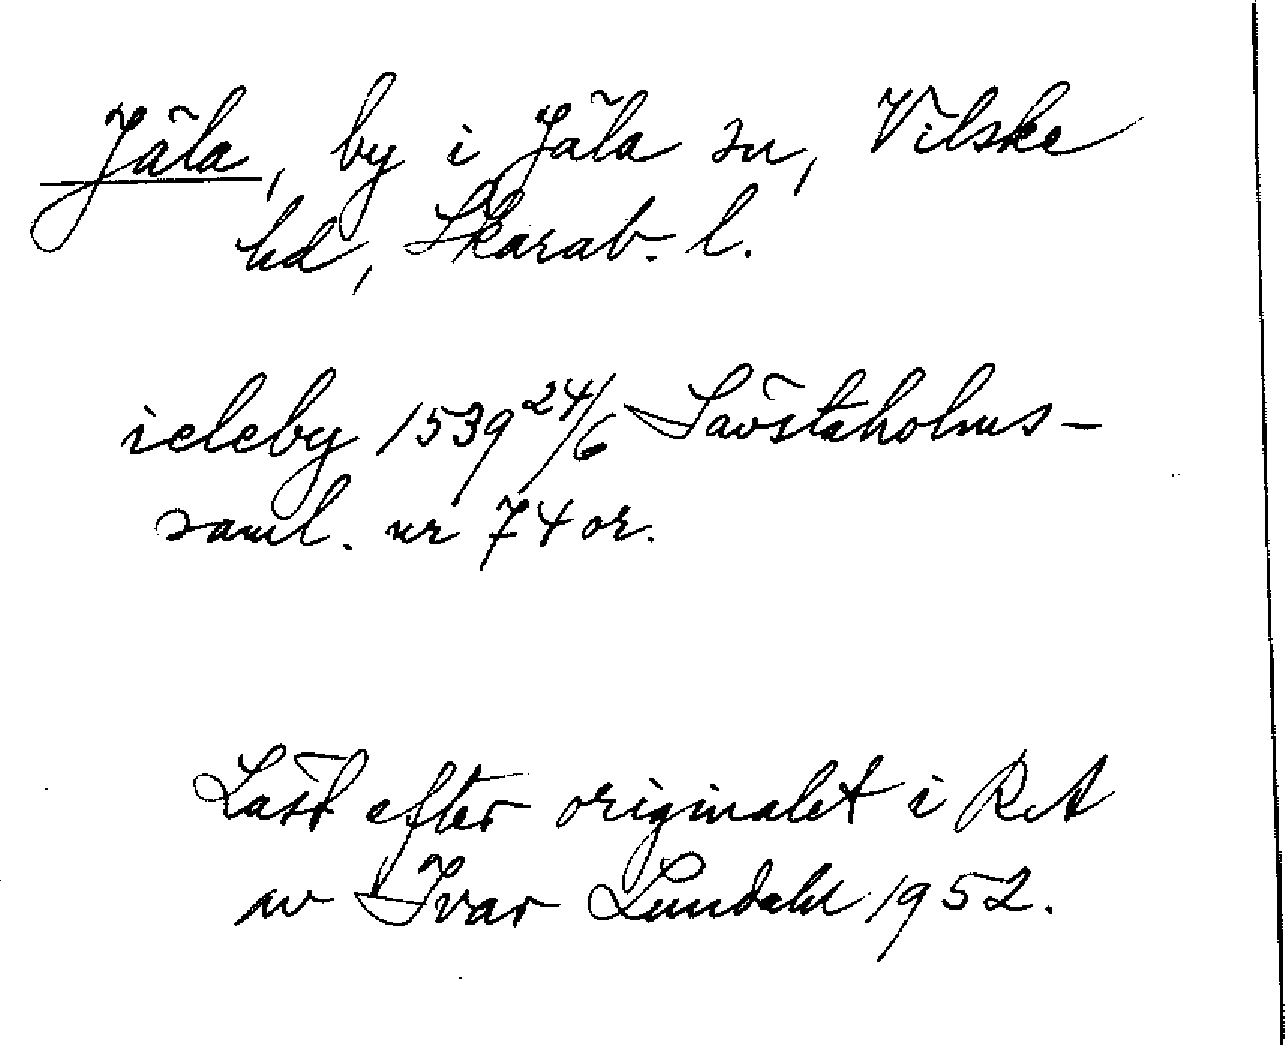 Jäla, by i Jäla sn, Vilske
hd, Skarab. l.
ieleby 1539 24/6 Sävstaholms-
saml. nr 74 or.
Läst efter originalet i RA
av Ivar Lundahl 1952.